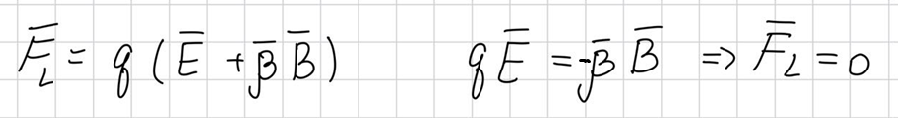 F̅_L = q (E̅ + β̅ B̅)    q E̅ = -β̅ B̅ ⇒ F̅_L = 0